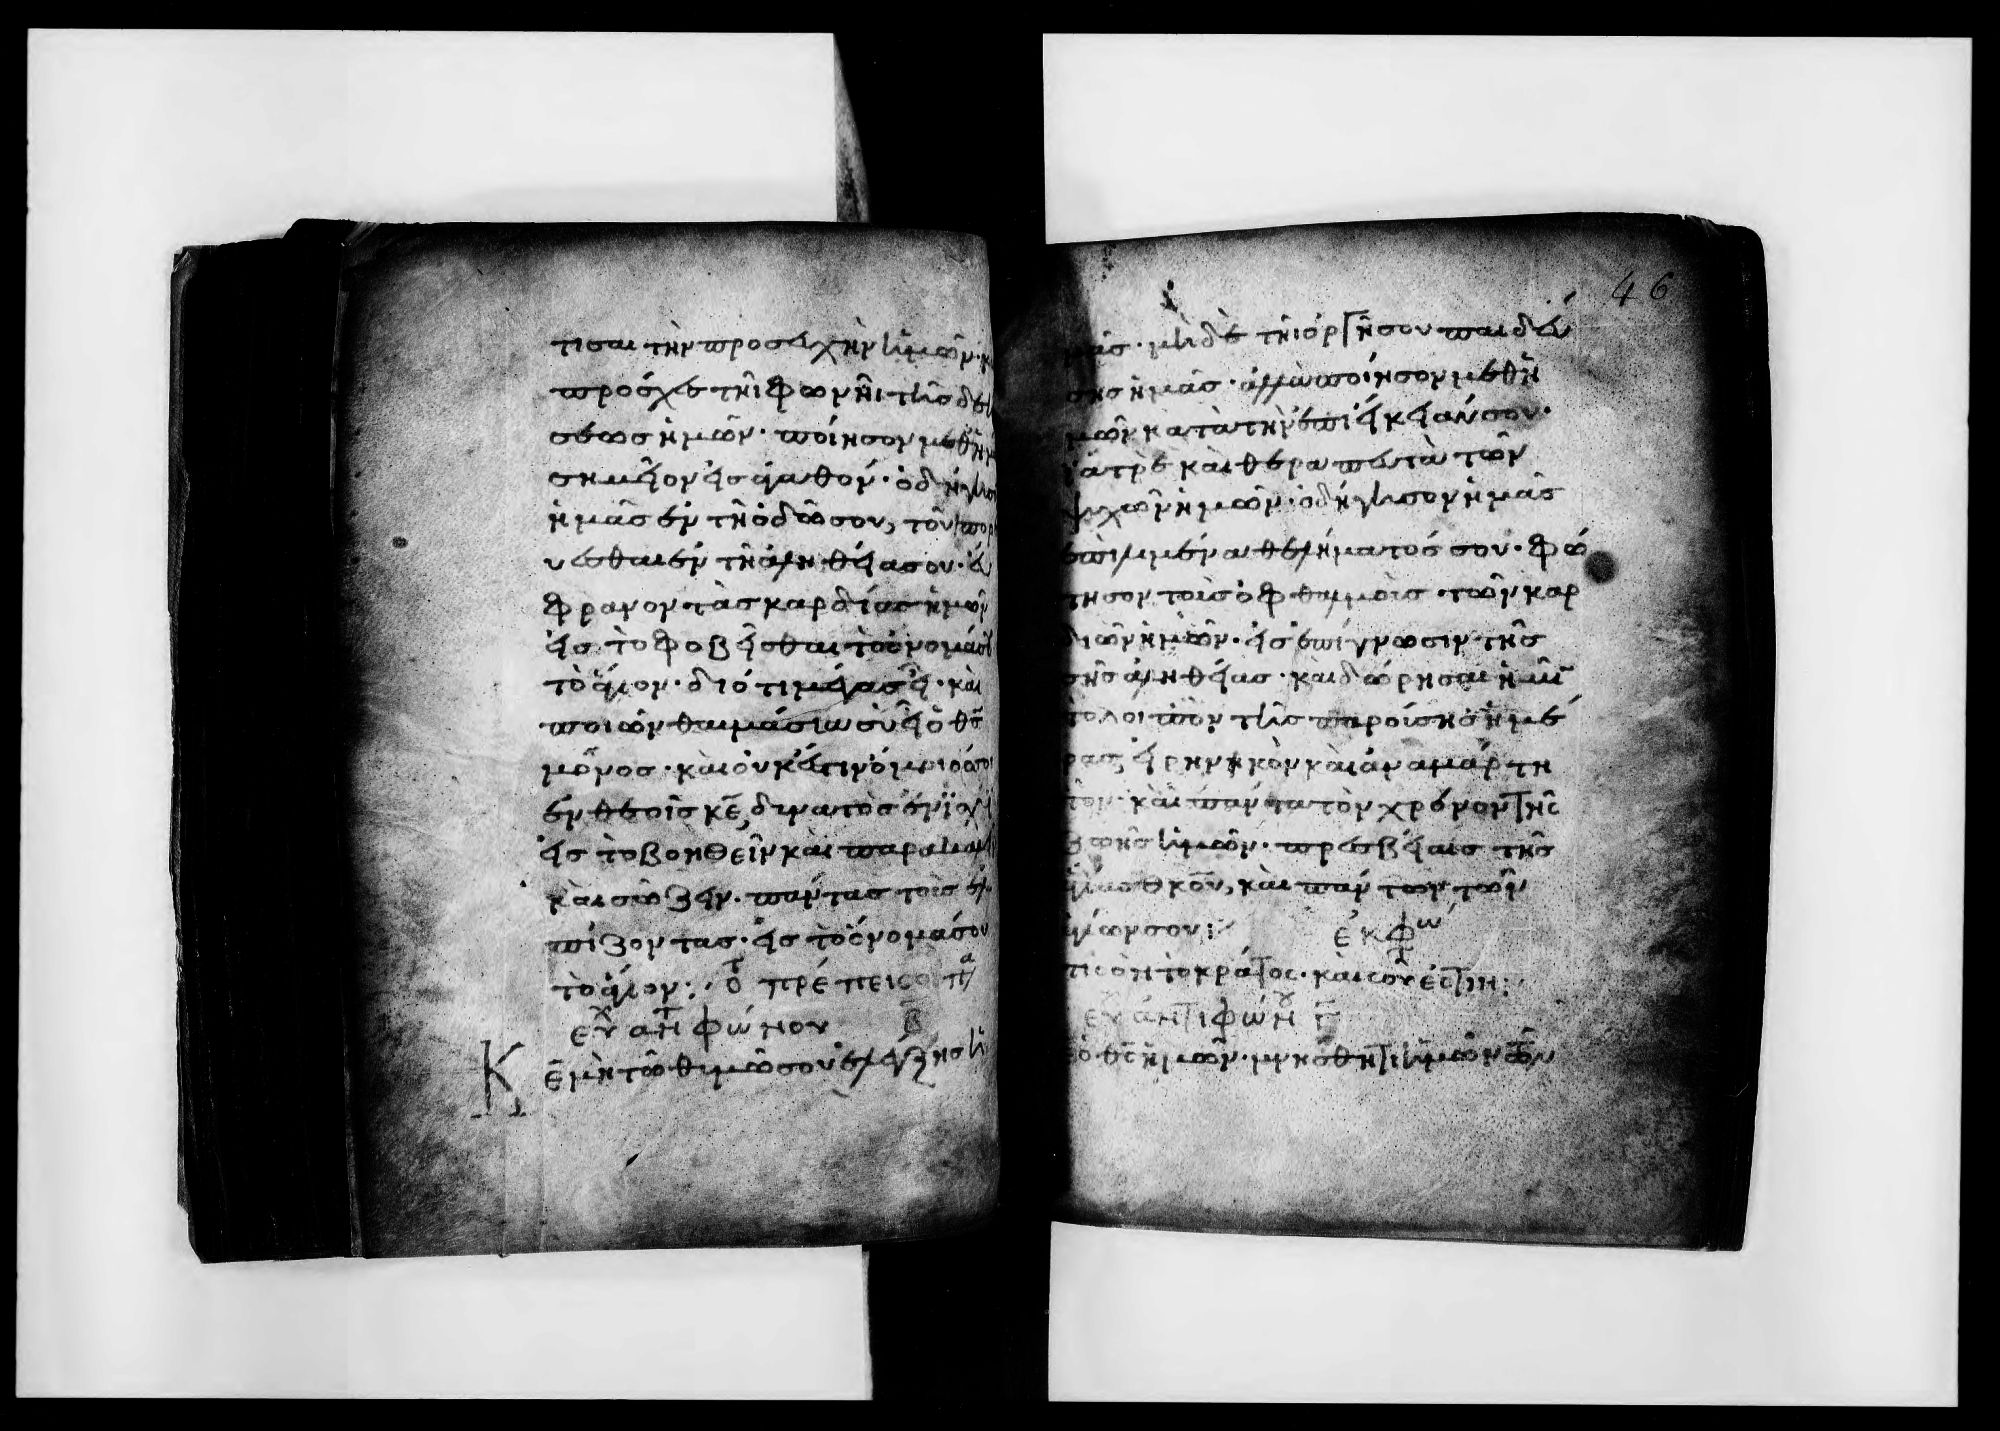 τισαι τὴν προσευχὴν ἡμῶν· κ
πρόσχες τῆι φωνῆι τῆς δε
ήσεως ἡμῶν· ποίησον μεθ ἡ
σημεῖον εἰς ἀγαθόν· ὁδήγησον
ἡμᾶς ἐν τῆ ὁδῶ σου, τοῦ πορ
εύεσθαι ἐν τῆ ἀληθεία σου· εὔ
φρανον τὰς καρδίας ἡμῶν
εἰς τὸ φοβεῖσθαι τὸ ὄνομά σου
τὸ ἅγιον· διότι μέγας εἶ· καὶ
ποιῶν θαυμάσια σὺ εἶ ὁ θ̅ς̅
μόνος· καὶ οὐκ ἔστιν ὅμοιός σοι
ἐν θεοῖς κ̅ε̅, δυνατὸς ἐν ἰσχύι
εἰς τὸ βοηθεῖν καὶ παρακαλεῖν
καὶ σώζειν· πάντας τοὺς ἐλ
πίζοντας· εἰς τὸ ὄνομά σου
τὸ ἅγιον: ὅτ πρέπει σοι πα
εὐχ ἀντ φώνου β̅
Κ ε̅ μὴ τῶ θυμῶ σου ἐλέγξης ἡ
46
μᾶς· μὴδὲ τῆ ὀργῆ σου παιδεύ
σης ἡμᾶς· ἀλλὰ ποίησον μεθ ἡ
μῶν κατὰ τὴν ἐπιείκειάν σου·
ἰατρὲ καὶ θεραπευτὰ τῶν
ψυχῶν ἡμῶν· ὁδήγησον ἡμᾶς
ἐπὶ λιμένα θελήματός σου· φώ
τησον τοὺς ὀφθαλμοὺς τῶν καρ
διῶν ἡμῶν· εἰς ἐπίγνωσιν τῆς
σῆς ἀληθείας· καὶ δώρησαι ἡμῖν
τὸ λοιπὸν τῆς παρούσης ἡμέ
ρας εἰρηνηκὸν καὶ ἀναμάρτη
τον· καὶ πάντα τὸν χρόνον τῆς
ζωῆς ἡμῶν· πρεσβείαις τῆς
ἁγίας θ̅κ̅ου, καὶ πάντων τῶν
ἁγίων σου: ἐκφώ
ὅτι σὸν τὸ κράτος· καὶ σοῦ ἐστιν:
εὐχ ἀντιφών γ̅
ὁ θ̅ς̅ ἡμῶν· μνήσθητι ἡμῶν τῶν